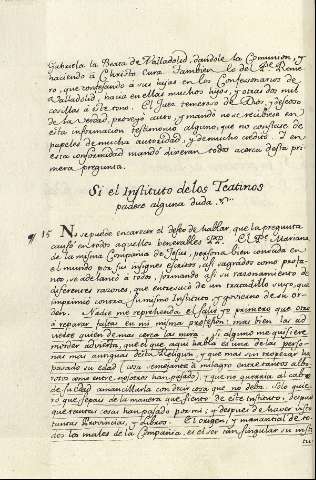 Gabriela la Beata de Valladolid, dandole la Comunion, y
haciendo à Christo Cura. Tambien lo del Pe. Reme-
ro, que confesando a sus hijas en los Confesonarios de
Valladolid, hacia en ellas muchos hijos, y otras mil
cosillas à este tono. El Juez temeroso de Dios, y deseoso
de la verdad, proveyò auto, y mandò no se recibiese en
esta informacion testimonio alguno, que no constase de
papeles de mucha autoridad, y de mucho credito. Y en
esta conformidad mandò dixeran todos acerca desta pri-
mera pregunta.
Si el Instituto de los Teatinos
padece alguna duda &.
15 No se puede encarecer el deseo de hablar que la pregunta
causò en todos aquellos venerables PP. El Pe. Mariana
de la misma Compania de Jesus, persona bien conocida en
el mundo por sus insignes Escritos, asi sagrados como profa-
nos, se adelantò a todos, formando asi su razonamiento de
diferentes razones, que entresacò de un tratadillo suyo, que
imprimiò contra su mismo Instituto, y govierno de su or-
den. Nadie me reprehenda si salgo yo primero que otro
à reparar faltas en mi misma profesion: mas bien las ad-
vierte quien de mas cerca las mira. Si alguno me quisiere
morder advierta, que el que aqui habla es una de las perso-
nas mas antiguas desta Religion, y que mas sin tropezar ha
pasado su edad
que à milagro entre tantos albo-
rotos
y que no querria al cabo
de su edad amancillarla con decir cosa que no deba. Solo quie-
ro que sepais de la manera que siento de este instituto, despues
que tantas cosas han pasado por mi; y despues de haver visto
tantas Provincias, y Libros. El origen, y manantial de to-
dos los males de la Compañia, es el ser tan singular su insti-
tu-